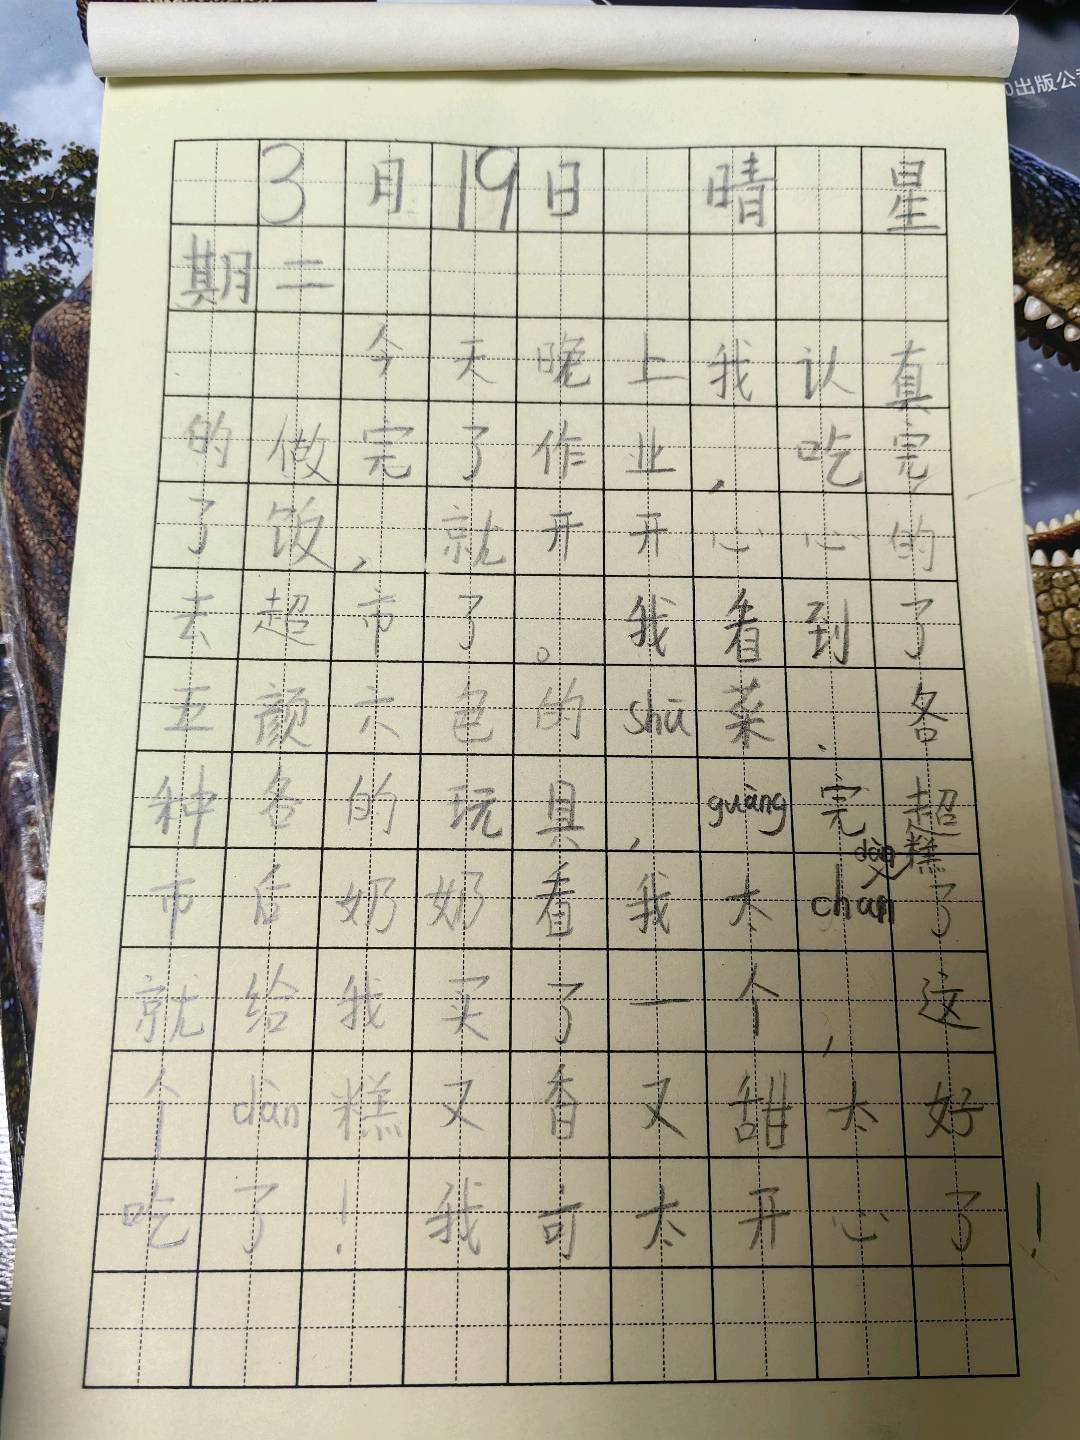 3月19日 晴 星
期二
今天晚上我认真
的做完了作业，吃完
了饭，就开开心心的
去超市了。我看到了
五颜六色的shū菜．各
种各的玩具，guàng完超
市后奶奶看我太chan dàn糕了
就给我买了一个，这
个dàn糕又香又甜太好
吃了！我可太开心了！
出版公